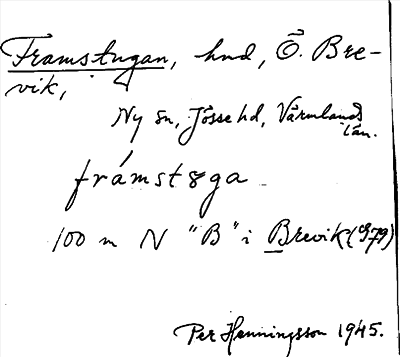 Framstugan, hmd, Ö. Bre-
vik,
Ny sn, Jösse hd, Värmlands
län.
frámstɞga
100 m N "B" i Brevik (979)
Per Henningsson 1945.